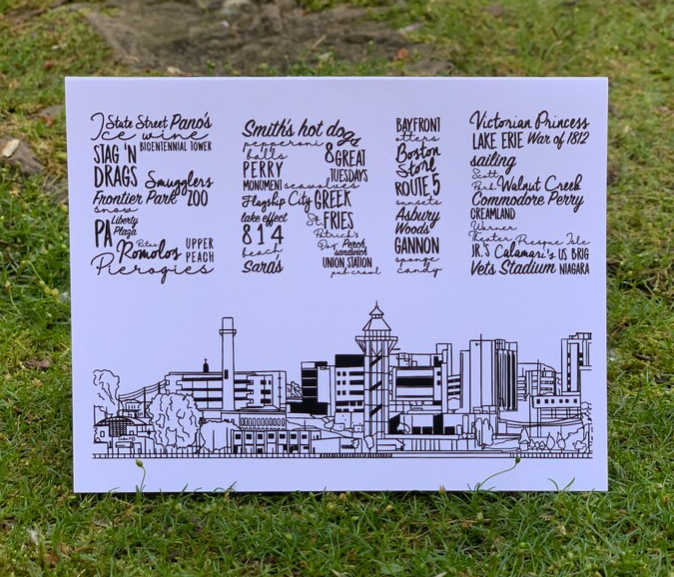 State Street Pano's
Ice wine
BICENTENNIAL TOWER
STAG 'N
DRAGS
Smugglers
Frontier Park ZOO
snow
PA
Liberty
Plaza
Ritas
Romolos
UPPER
PEACH
Pierogies
Smith's hot dogs
pepperoni
balls
8 GREAT
TUESDAYS
PERRY
MONUMENT seawolves
Flagship City GREEK
FRIES
lake effect
St.
Patrick's
Day
814
beach
Perch
sandwich
Sara's
UNION STATION
pub crawl
BAYFRONT
otters
Boston
Store
ROUTE 5
sunsets
Asbury
Woods
GANNON
sponge
candy
Victorian Princess
LAKE ERIE War of 1812
sailing
Scott
Park Walnut Creek
Commodore Perry
CREAMLAND
Warner
Theater Presque Isle
JR.'S Calamari's US BRIG
Vets Stadium NIAGARA